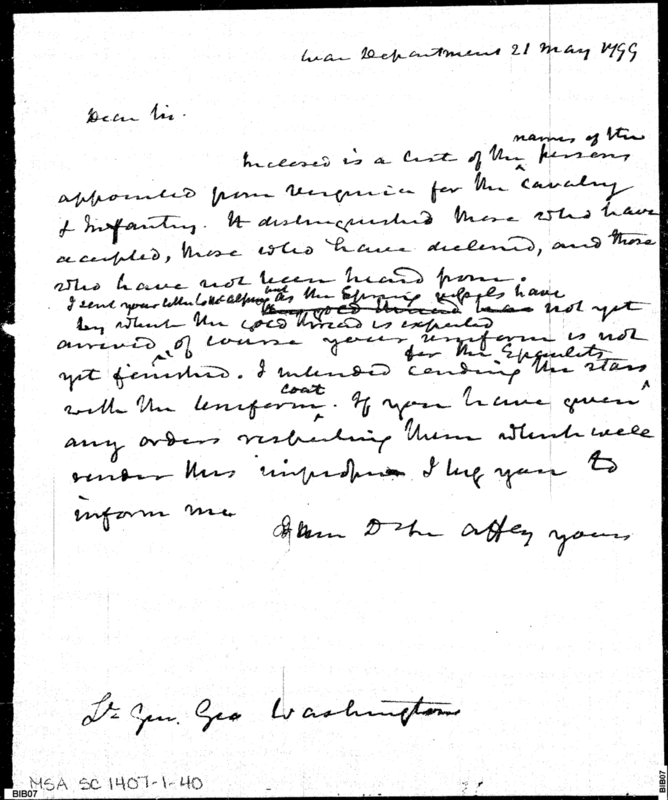 War Department 21 May 1799
Dear Sir.
names of the
Inclosed is a List of the persons
appointed from Virginia for the Cavalry
& Infantry. It distinguished those who have
accepted, those who have declined, and those
who have not been heard from.
I sent your letter to McAlpin and as the Spring vessels have
the gold thread has not yet
by which the gold thread is expected
arrived, of course your uniform is not
for the Epaulets
yet finished. I intended sending the stars
coat
with the Uniform. If you have given
any orders respecting them which will
render this improper I beg you to
inform me
I am D Sir affey yours
Lt Gen. Geo Washington
MSA SC 1407-1-40
BIB07
BIB07